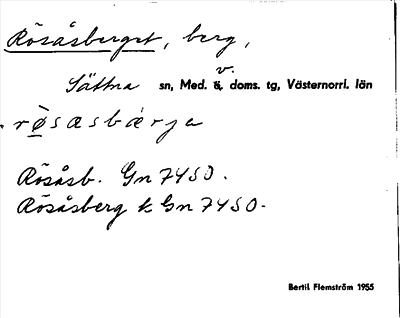 Rösåsberget, berg,
Sättna sn, Med. v. doms. tg, Västernorrl. län
røsasbærja
Rösåsb. Gn 7450.
Rösåsberg k Gn 7450.
Bertil Flemström 1955